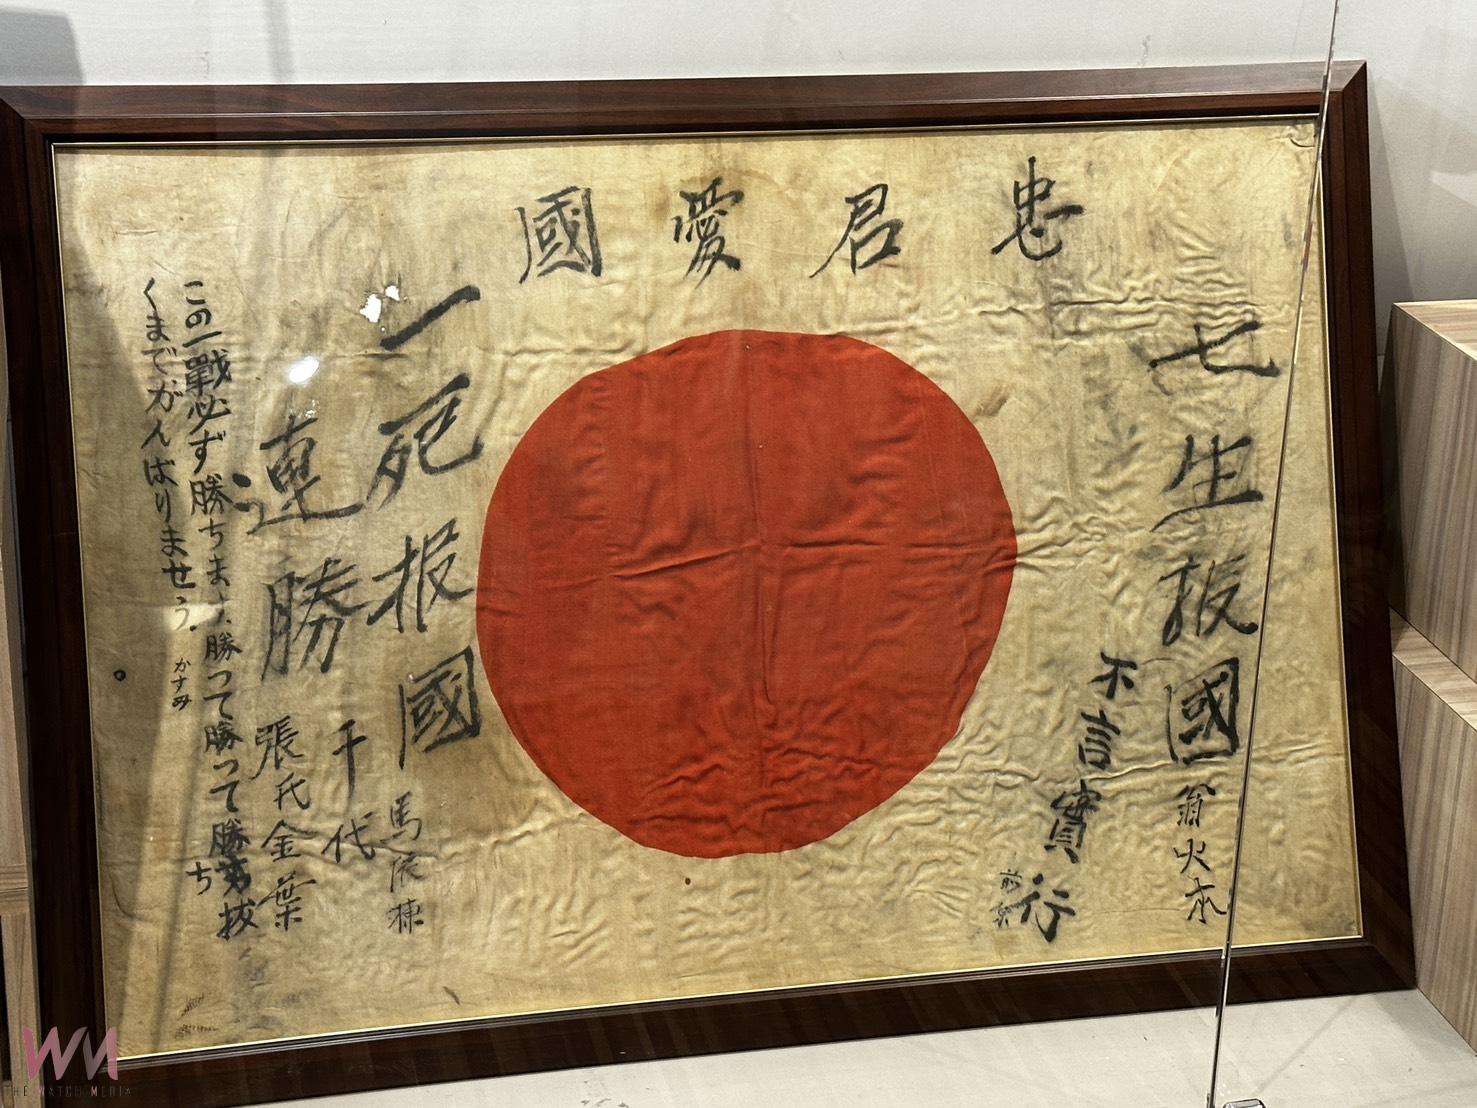 忠君愛國
七生报國
翁火本
不言實行
一死报國
馬
千代
連勝
張氏金葉
この一戰必ず勝ちまた勝って勝って勝ち抜
くまでがんばりませう。
かすみ
WM
THE WATCH MEDIA